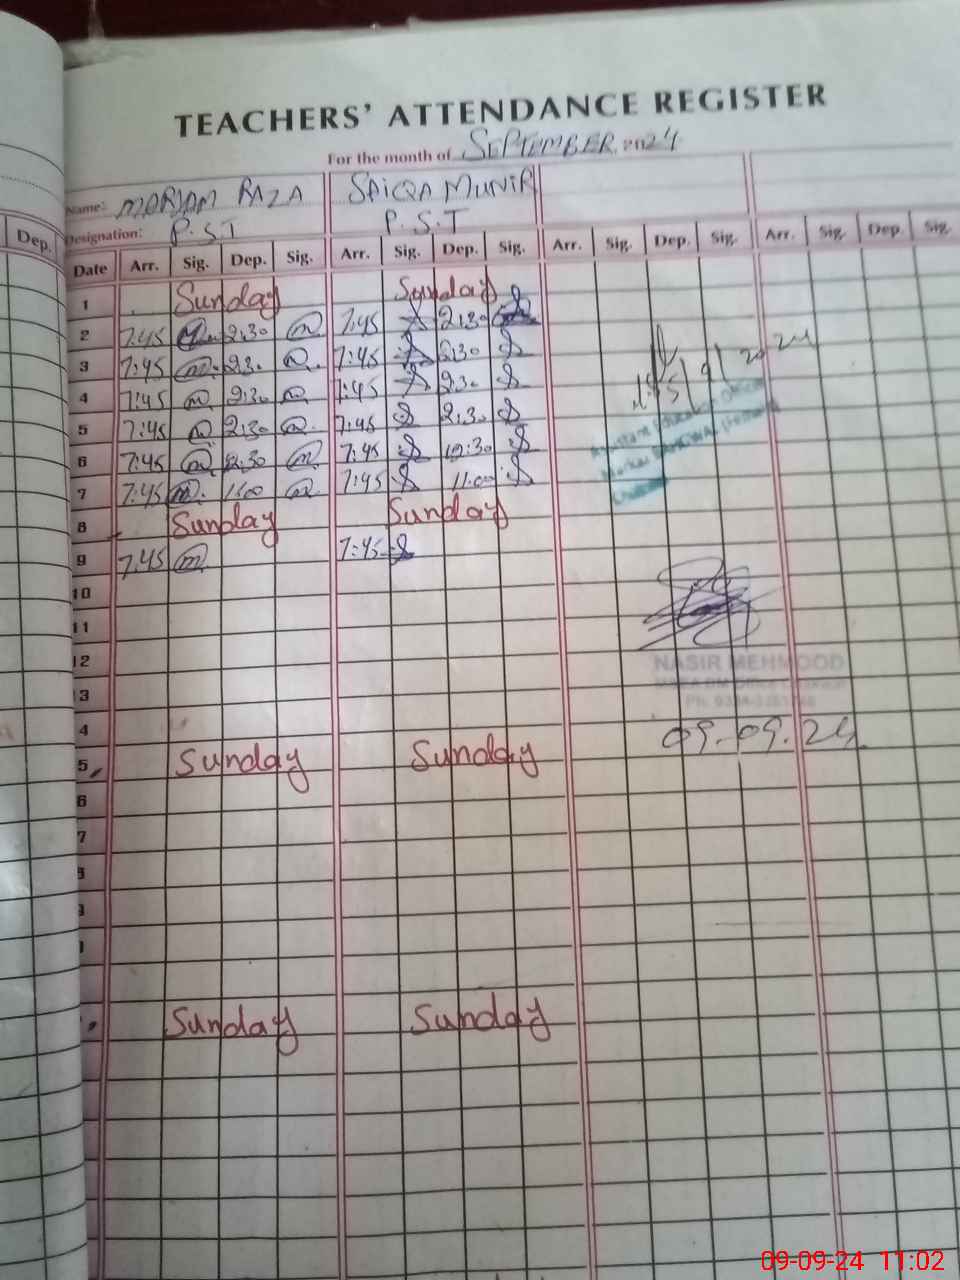 TEACHERS' ATTENDANCE REGISTER
For the month of SEPTEMBER 2024
Name: MARYAM RAZA SAIQA MUNIR
Designation: P.S.T P.S.T
Dep. Date Arr. Sig. Dep. Sig. Arr. Sig. Dep. Sig. Arr. Sig. Dep. Sig. Arr. Sig. Dep. Sig.
1 Sunday Sunday
2 7:45 2:30 7:45 2:30
3 7:45 2:30 7:45 2:30
4 7:45 2:30 7:45 2:30
5 7:45 2:30 7:45 2:30
6 7:45 12:30 7:45 12:30
7 7:45 11:00 7:45 11:00
8 Sunday Sunday
9 7:45 7:45
10
11
12
13
4
5 Sunday Sunday
6
7
Sunday Sunday
5/9/2024
Assistant Education Officer
Markaz
NASIR MEHMOOD
09.09.24
09-09-24 11:02